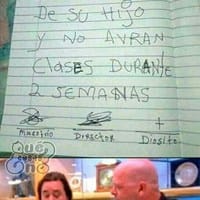 De su Hijo
y No AVRAN
clasEs DURAnTE
2 SEMANAS
Maestro Director Diosito
QUE
COSAS
NO